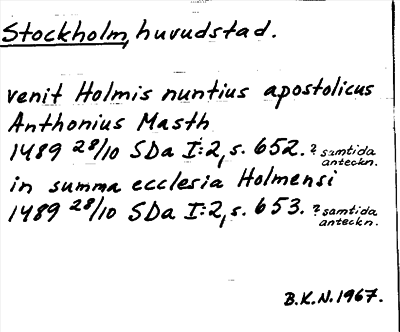 Stockholm, huvudstad.
venit Holmis nuntius apostolicus
Anthonius Masth
1489 28/10 SDa I:2, s. 652. ? samtida anteckn.
in summa ecclesia Holmensi
1489 28/10 SDa I:2, s. 653. ? samtida anteckn.
B.K.N. 1967.